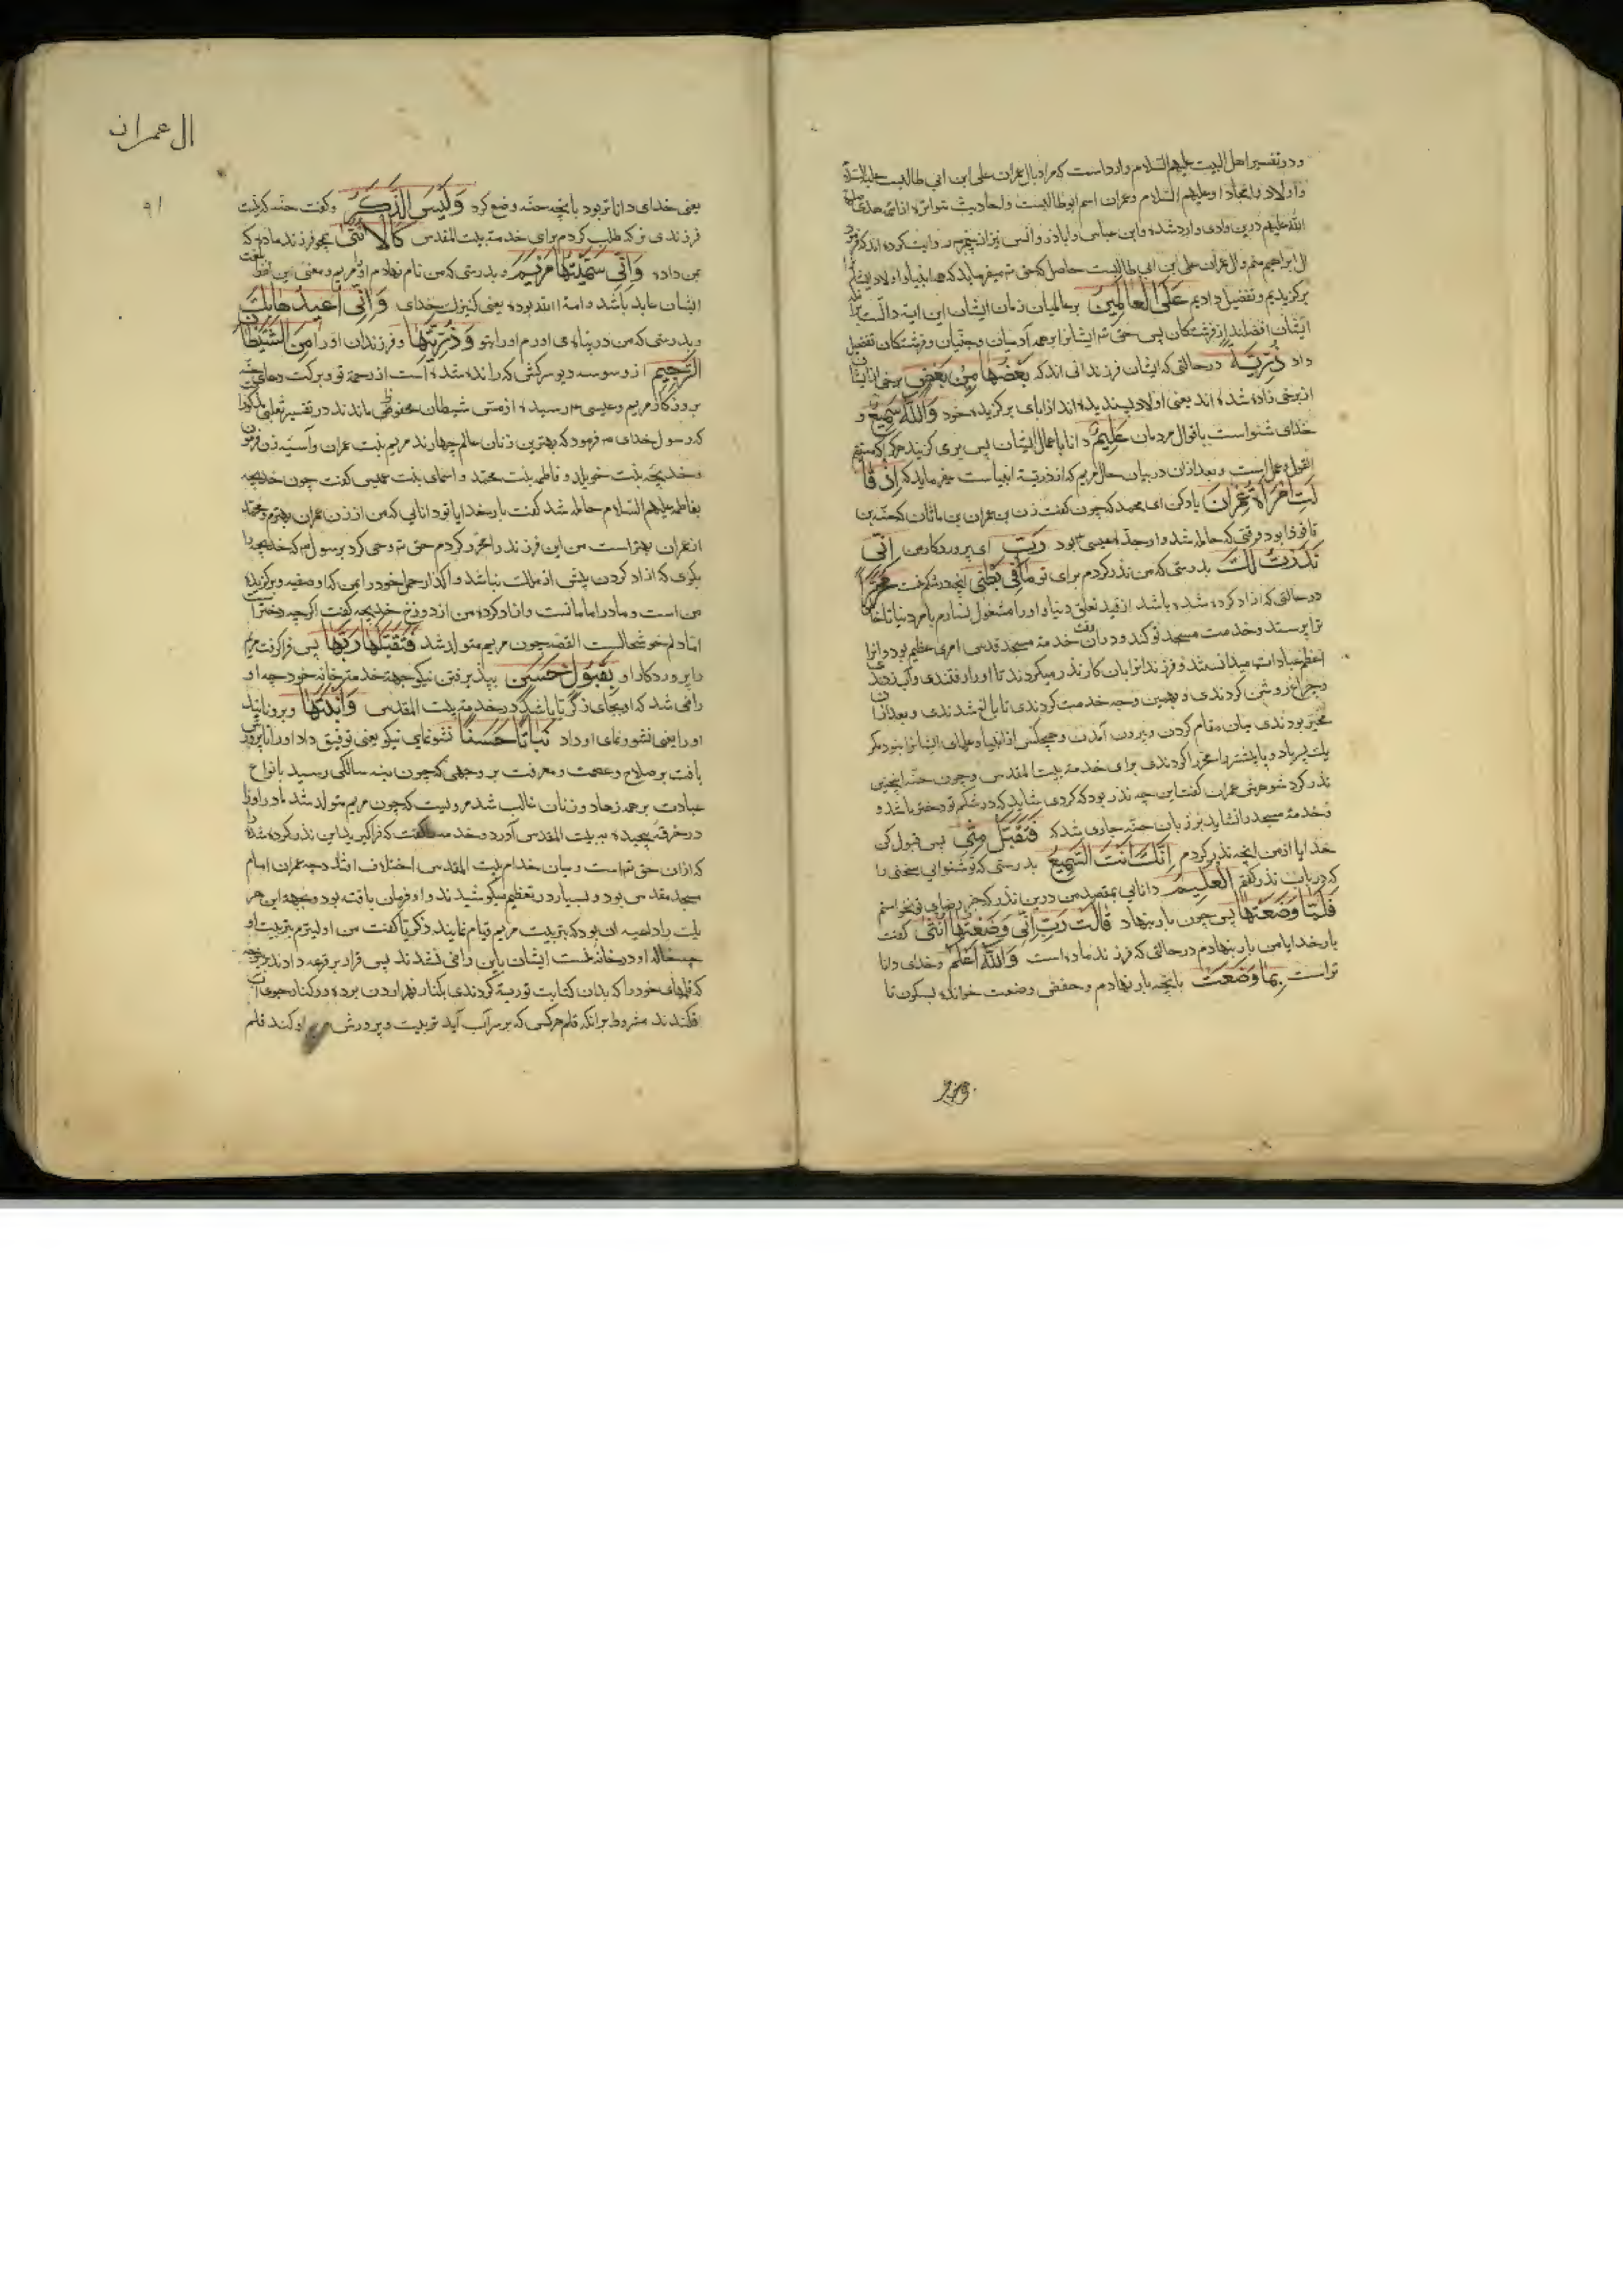 و در تفسیر اهل البیت علیهم السلام وارد است که مراد بال عمران علی ابن ابی طالبست علیه السلام
و اولاد با امجاد او علیهم السلام و عمران اسم ابوطالبست و احادیث متواتره از ائمه هدی صلوة
الله علیهم درین وادی وارد شده و ابن عباس و اباذر و انس نیز از پیغمبر ص روایت کرده اند که فرمود
ال ابراهیم منم و ال عمران علی ابن ابی طالبست حاصل که حق تع میفرماید که همه انبیا و اولاد ایشانرا
برگزیدیم و تفضیل دادیم عَلَی العالَمینَ بر عالمیان زمان ایشان این ایه دالست بر انکه
ایشان افضلند از فرشتگان پس حق تع ایشانرا بر همه آدمیان و جنیان و فرشتکان تفضیل
داد ذُرِّیَّةً در حالتی که ایشان فرزندانی اند که بَعْضُها مِنْ بَعْضٍ برخی از ایشان
از برخی زاده شده اند یعنی اولاد پسندیده اند از ابای برگزیده خود وَاللّهُ سَمیعٌ و
خدای شنواست باقوال مردمان عَلیمٌ دانا باعمال ایشان پس بری گزیند هرکرا که مستقیم
القول و عمل است و بعد ازان در بیان حال مریم که از ذریة انبیاست میفرماید که اِذْ قا
لَتِ امْرَاَةُ عِمْرانَ یاد کن ای محمد که چون گفت زن عمران بن ماثان که حنه بن
فاقوذا بود وقتی که حامله شد و او جده عیسی ع بود رَبِّ ای پروردکار من اِنّی
نَذَرْتُ لَکَ بدرستی که من نذر کردم برای تو ما فی بَطْنی انچه در شکم منست مُحَرَّرًا
در حالتی که ازاد کرده شده باشد از قید تعلق دنیا و او را مشغول نسازم بامر دنیا تا خاص
ترا پرستد و خدمت مسجد تو کند و در ان وقت خدمة مسجد قدس امری عظیم بود و انرا
اعظم عبادات میدانستند و فرزندانرا بان کار نذر میکردند تا او را رفتندی و آب زدندی
و چراغ روشن کردندی و بهمین وجه خدمت کردندی تا بالغ شدندی و بعد ازان
مخیر بودندی میان مقام کردن و بیرون آمدن و هیچکس از انبیا و علمای ایشانرا نبود مگر
یک پسر یا دو یا بیشتر یا محررا کردندی برای خدمة بیت المقدس و چون حنه اینچنین
نذر کرد شوهرش عمران گفت این چه نذر بود که کردی شاید که در شکم تو دختر باشد و
خدمة مسجد را نشاید بر زبان حنه جاری شد که فَتَقَبَّلْ مِنّی پس قبول کن
خدایا از من انچه نذر کردم اِنَّکَ اَنْتَ السَّمیعُ بدرستی که تو شنوایی سخنی را
که در باب نذر گفتم الْعَلیمُ دانایی بمقصد من درین نذر که جز رضای تو نخواستم
فَلَمّا وَضَعَتْها پس چون بار بنهاد قالَتْ رَبِّ اِنّی وَضَعْتُها اُنْثی گفت
بار خدایا من بار بنهادم در حالتی که فرزند ماده است وَاللّهُ اَعْلَمُ و خدای دانا
تراست بِما وَضَعَتْ بانچه بار نهادم و حفص وضعت خوانده بسکون تا
ال عمران
۹۱
یعنی خدای داناتر بود بانچه حنه وضع کرد وَلَیْسَ الذَّکَرُ و گفت حنه که نیست
فرزندی نر که طلب کردم برای خدمة بیت المقدس کَالْاُنْثی همچو فرزند ماده که
بمن داده وَاِنّی سَمَّیْتُها مَرْیَمَ و بدرستی که من نام نهادم او را مریم و معنی این لفظ بلغت
ایشان عابد باشد و امة الله بود یعنی کنیزک خدای وَاِنّی اُعیذُها بِکَ
و بدرستی که من در پناه می اورم او را بتو وَذُرِّیَّتَها و فرزندان او را مِنَ الشَّیْطانِ
الرَّجیمِ از وسوسه دیو سرکش که رانده شده است از رحمة تو و برکت دعای حنه
بروزگار مریم و عیسی ع رسیده از مس شیطان محفوظ ماندند در تفسیر ثعلبی مذکور است
که رسول خدای ص فرمود که بهترین زنان عالم چهارند مریم بنت عمران و آسیه زن فرعون
و خدیجه بنت خویلد و فاطمه بنت محمد و اسمای بنت عمیس گفت چون خدیجه
بفاطمه علیهم السلام حامله شد گفت بار خدایا تو دانایی که من از زن عمران بهترم و محمد
از عمران بهتر است من این فرزند را محرر کردم حق تع وحی کرد برسول ص که خدیجه را
بکوی که ازاد کردن پیش از ملک نباشد واگذار حمل خود را بمن که او صفیه و برگزیده
من است و مادر امامانست و ازاد کرده من از دوزخ خدیجه گفت اگرچه دختر است
اما دلم خوشحالست القصه چون مریم متولد شد فَتَقَبَّلَها رَبُّها پس فراگرفت مریم
را پروردکار او بِقَبُولٍ حَسَنٍ بپذیرفتن نیکو جهة خدمة خانه خود چه او
راضی شد که او بجای ذکر تا باشد در خدمة بیت المقدس وَاَنْبَتَها و برویانید
او را یعنی نشو و نمای او داد نَباتًا حَسَنًا نشو نمای نیکو یعنی توفیق داد او را تا پرورش
یافت بر صلاح و عصمت و معرفت بر وجهی که چون بنه سالگی رسید بانواع
عبادت بر همه زهاد و زنان غالب شد مرویست که چون مریم متولد شد مادر او را
در خرقه پیچیده به بیت المقدس آورد و گفت که فراگیرید این نذر کرده شده را
که ازان حق تع است و میان خدام بیت المقدس اختلاف افتاد چه عمران امام
مسجد مقدس بود و بسیار در تعظیم میکوشیدند و او فرمان یافته بود و بجهة این هر
یک را داعیه ان بود که بتربیت مریم قیام نمایند ذکریا گفت من اولیترم بتربیت او
چه خاله او در خانه منست ایشان باین راضی نشدند پس قرار بر قرعه دادند
که قلمهای خود را که بدان کتابت توریة کردندی بکنار نهر اردن برده و در کنار جوی آب
فکندند مشروط بر انکه قلم هرکس که بر سر آب آید تربیت و پرورش مریم او کند قلم